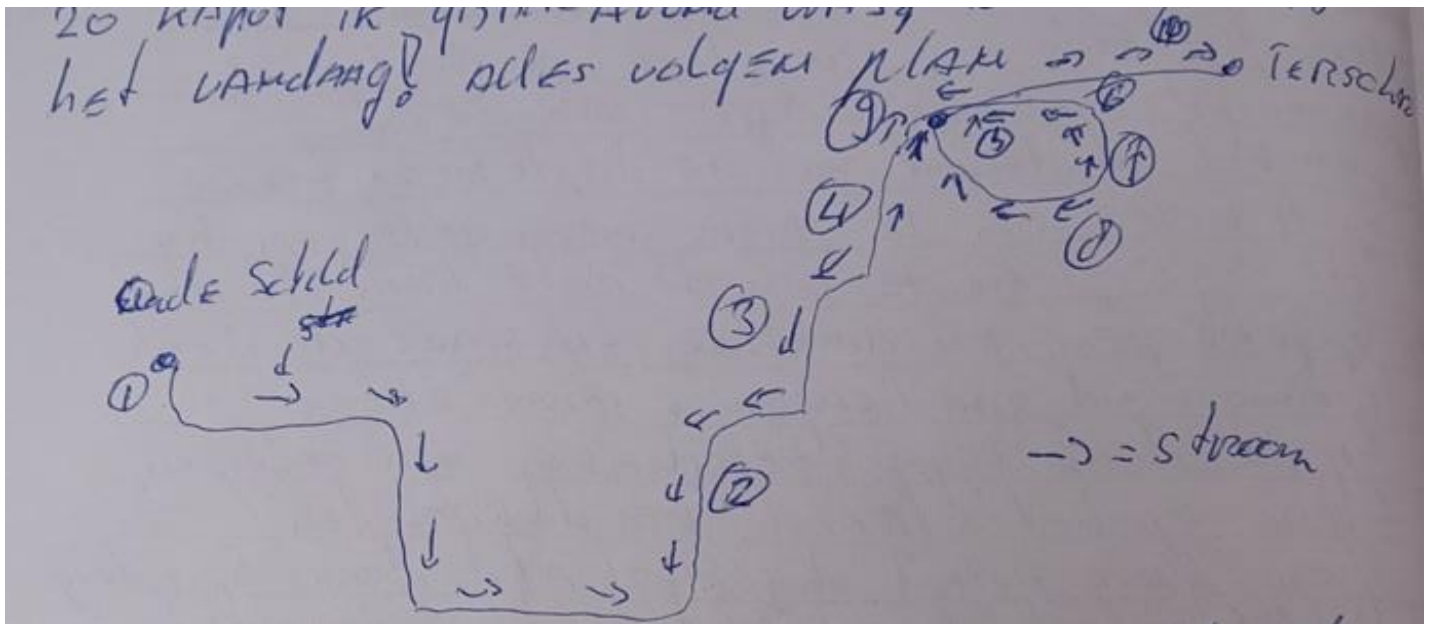 20 kapot ik
het vandaag! Alles volgen plan
10
Terschel
9
6
5
7
4
8
Oude Schild
3
1
2
→ = stroom